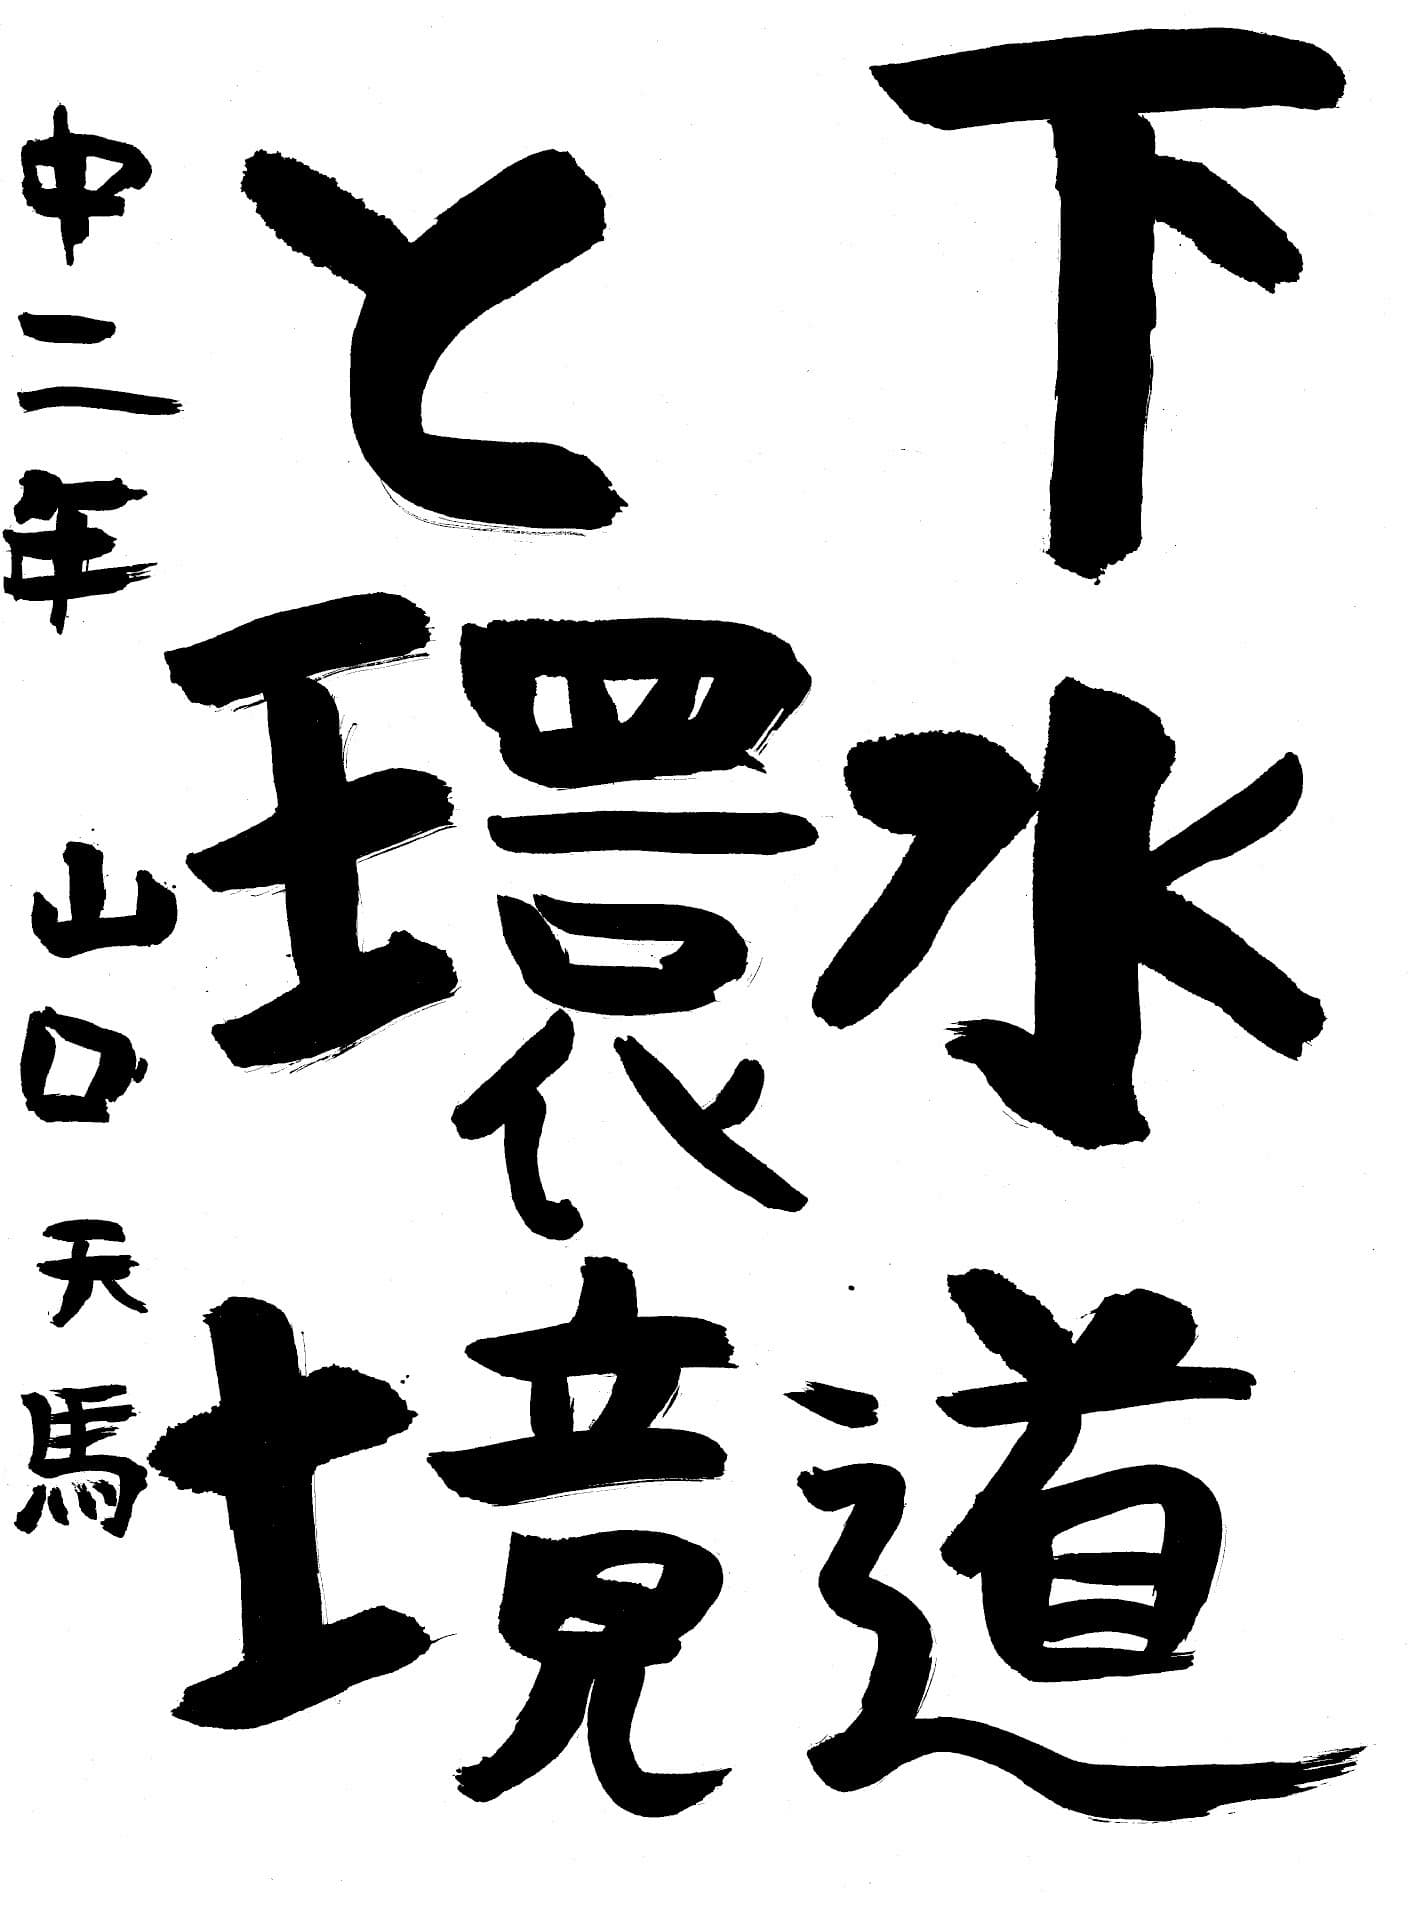 下水道
と環境
中二年 山口 天馬